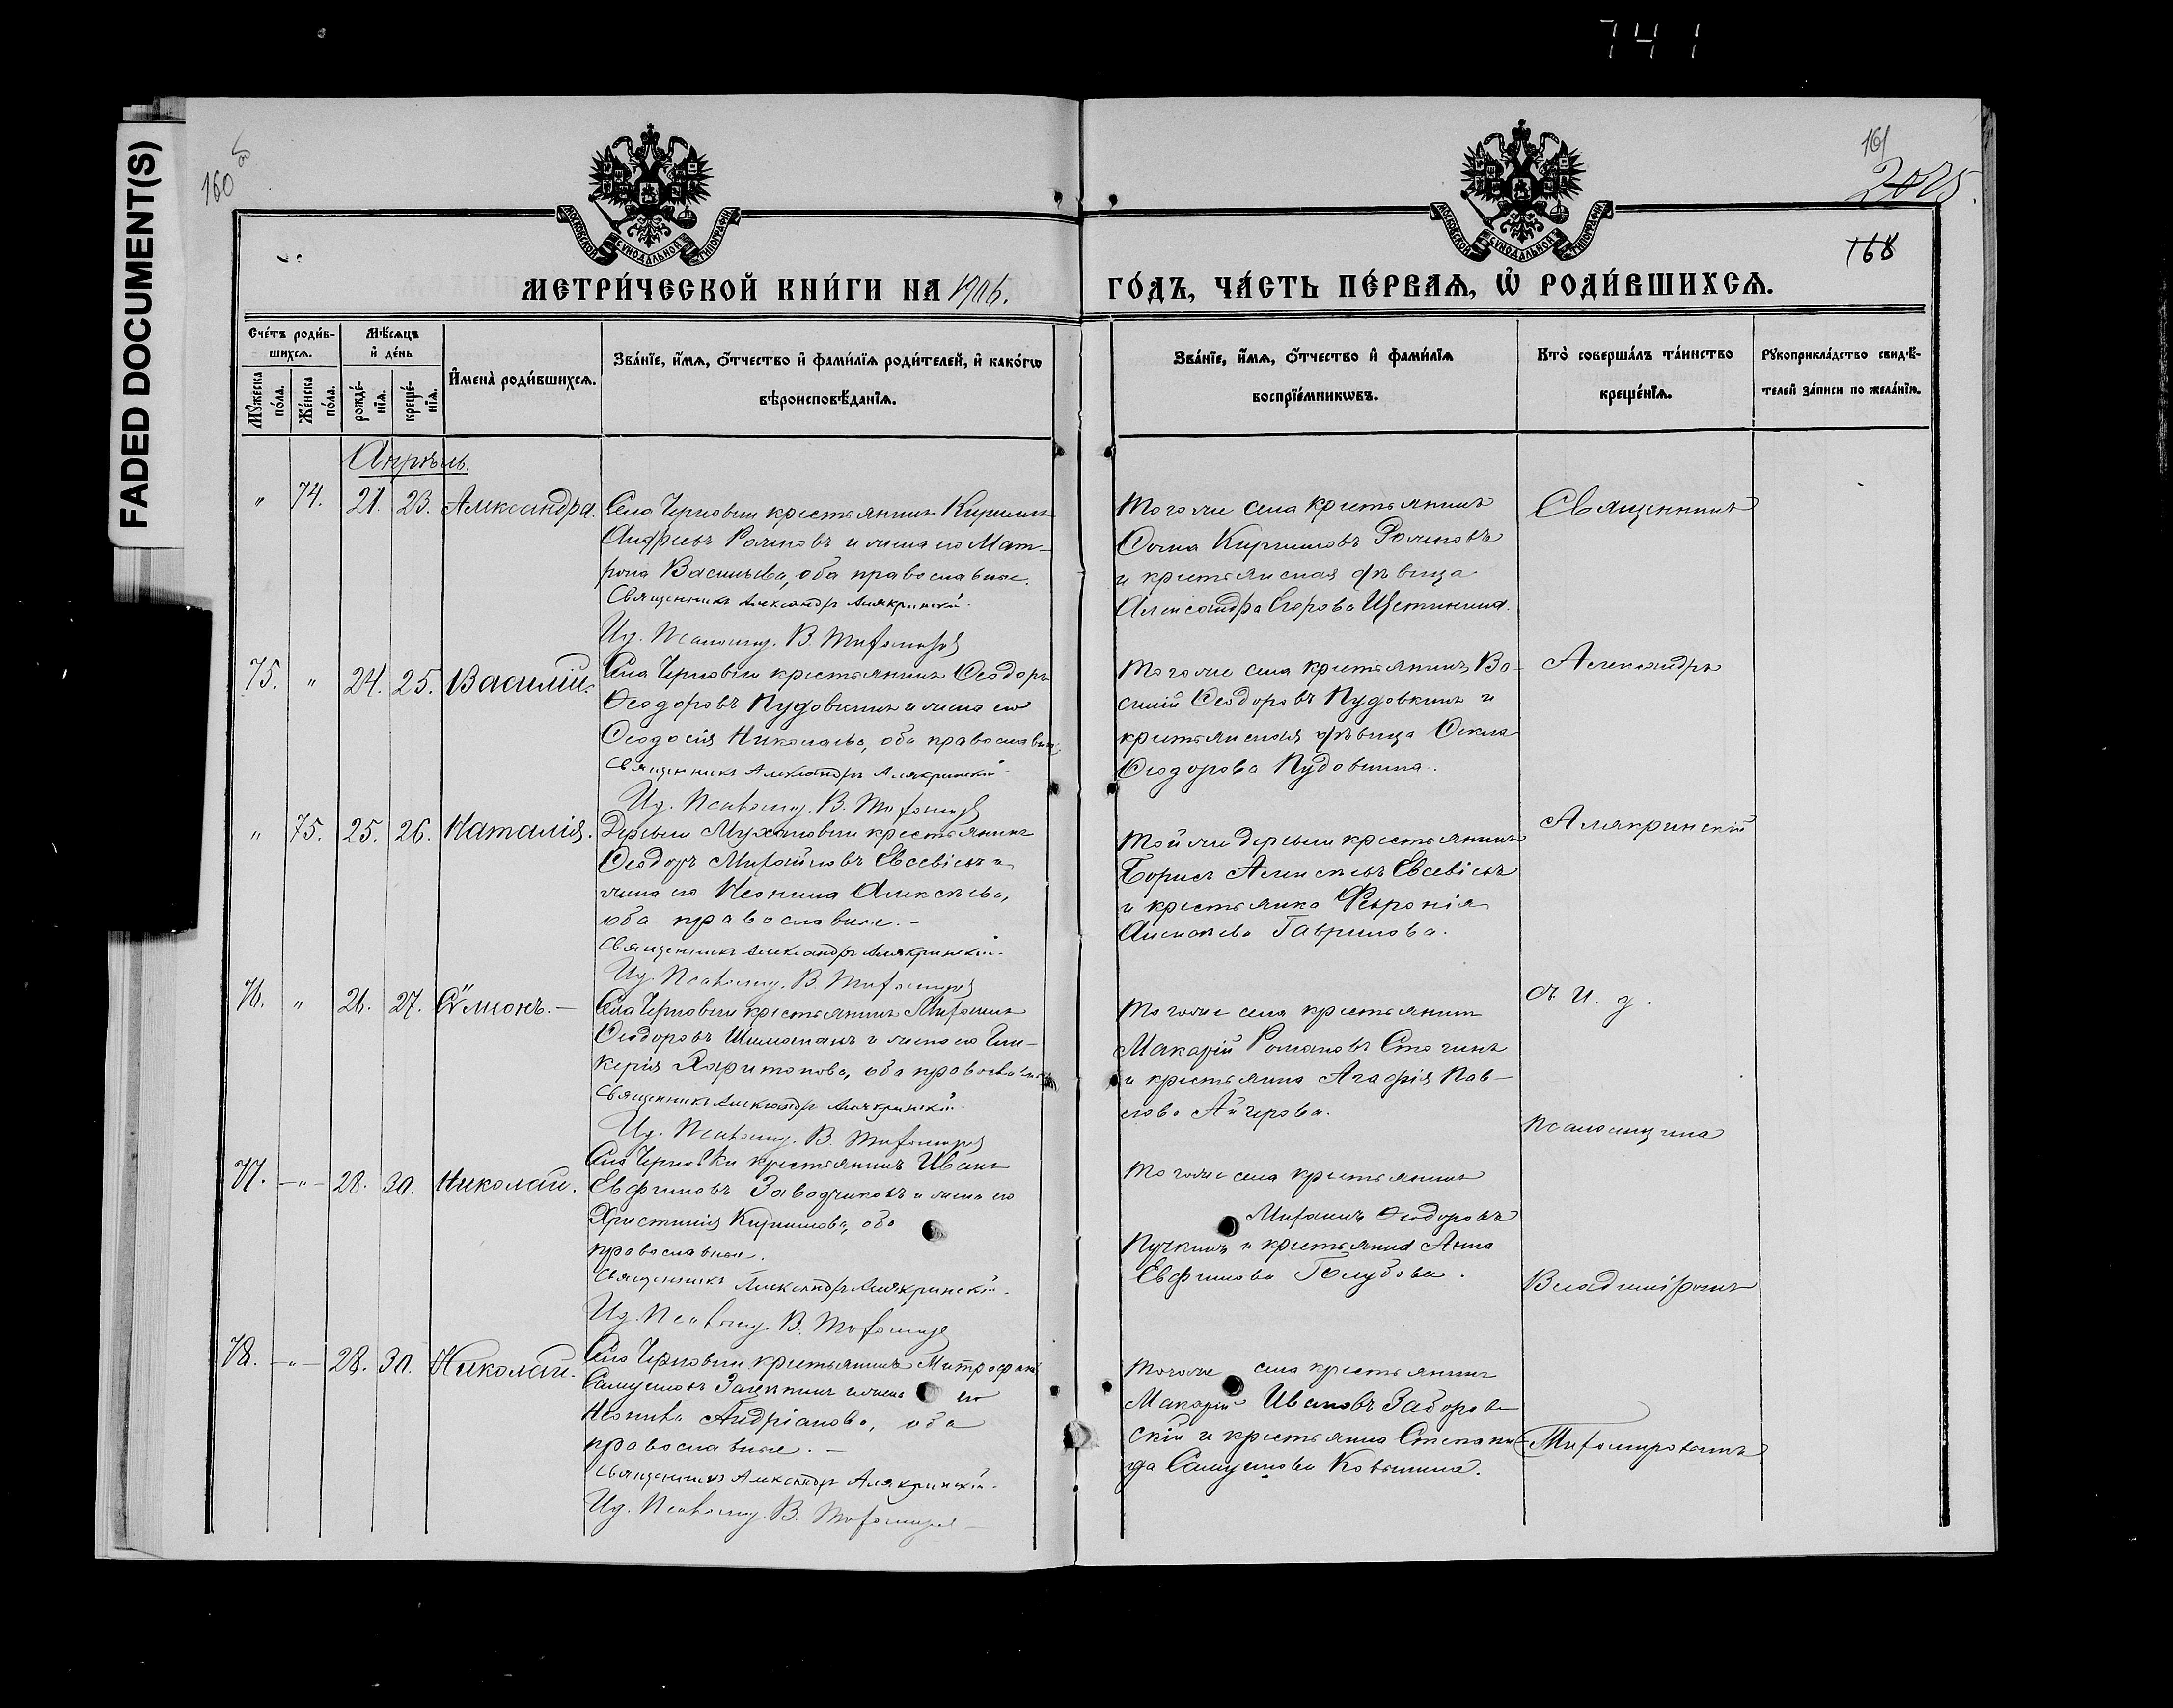 741
FADED DOCUMENT(S)
160
161
2025.
168
МОСКОВСКОЙ СѴНОДАЛЬНОЙ ТИПОГРАФІИ
МОСКОВСКОЙ СѴНОДАЛЬНОЙ ТИПОГРАФІИ
МЕТРИ́ЧЕСКОЙ КНИ́ГИ НА 1906.
ГО́ДЪ, ЧА́СТЬ ПЕ́РВАѦ, Ѡ҆ РОДИ́ВШИХСѦ.
Сче́тъ роди́в-
шихсѧ.
Мꙋ́жеска по́ла.
Же́нска по́ла.
Мѣ́сѧцъ
и҆ де́нь
рожде́-
нїѧ.
креще́-
нїѧ.
И҆мена̀ роди́вшихсѧ.
Зва́нїе, и҆́мѧ, ѻ҆́тчество и҆ фами́лїѧ роди́телей, и҆ како́гѡ
вѣроисповѣ́данїѧ.
Зва́нїе, и҆́мѧ, ѻ҆́тчество и҆ фами́лїѧ
воспрїе́мникѡвъ.
Кто̀ соверша́лъ та́инство
креще́нїѧ.
Рꙋкоприкла́дство свидѣ́-
телей за́писи по жела́нїю.
Апрѣль.
" 74. 21. 23. Александра.
Села Черновки крестьянинъ Кириллъ
Андреевъ Роликовъ и жена его Мат-
рона Васильева, оба православные.
Священникъ Александръ Алякринскій.
Ид. Псаломщ. В. Тихомировъ
Того же села крестьянинъ
Ѳома Кирилловъ Роликовъ
и крестьянская дѣвица
Александра Егорова Щетинина.
Священникъ
75. " 24. 25. Василій.
Села Черновки крестьянинъ Ѳеодоръ
Ѳеодоровъ Пудовкинъ и жена его
Ѳеодосія Николаева, оба православные
Священникъ Александръ Алякринскій.
Ид. Псаломщ. В. Тихомировъ
Того же села крестьянинъ Ва-
силій Ѳеодоровъ Пудовкинъ и
крестьянская дѣвица Ѳекла
Ѳеодорова Пудовкина.
Александръ
" 75. 25. 26. Наталія.
Деревни Мухановки крестьянинъ
Ѳеодоръ Михайловъ Евсевіевъ и
жена его Неонила Алексѣева,
оба православные. -
Священникъ Александръ Алякринскій.
Ид. Псаломщ. В. Тихомировъ
Той же деревни крестьянинъ
Борисъ Алексѣевъ Евсевіевъ
и крестьянка Февронія
Алексѣева Гаврилова.
Алякринскій
76. " 26. 27. Сѵмеонъ. -
Села Черновки крестьянинъ Михаилъ
Ѳеодоровъ и жена его Гли-
керія Харитонова, оба православные
Священникъ Александръ Алякринскій.
Ид. Псаломщ. В. Тихомировъ
Того же села крестьянинъ
Макарій Романовъ
и крестьянка Агафія Пав-
лова
съ И. д.
Псаломщика
77. - " - 28. 30. Николай.
Села Черновки крестьянинъ Иванъ
Евфимовъ Заводчиковъ и жена его
Христинія Кириллова, оба
православные.
Священникъ Александръ Алякринскій.
Ид. Псаломщ. В. Тихомировъ
Того же села крестьянинъ
Михаилъ Ѳеодоровъ
Пучкинъ и крестьянка Анна
Евфимова Голубова.
Владиміромъ
78. - " - 28. 30. Николай.
Села Черновки крестьянинъ Митрофанъ
Самуиловъ и жена его
Неонила Андріанова, оба
православные. -
Священникъ Александръ Алякринскій.
Ид. Псаломщ. В. Тихомировъ
Того же села крестьянинъ
Макарій Ивановъ Заборов-
скій и крестьянка Степани-
да Самуилова
Тихомировымъ